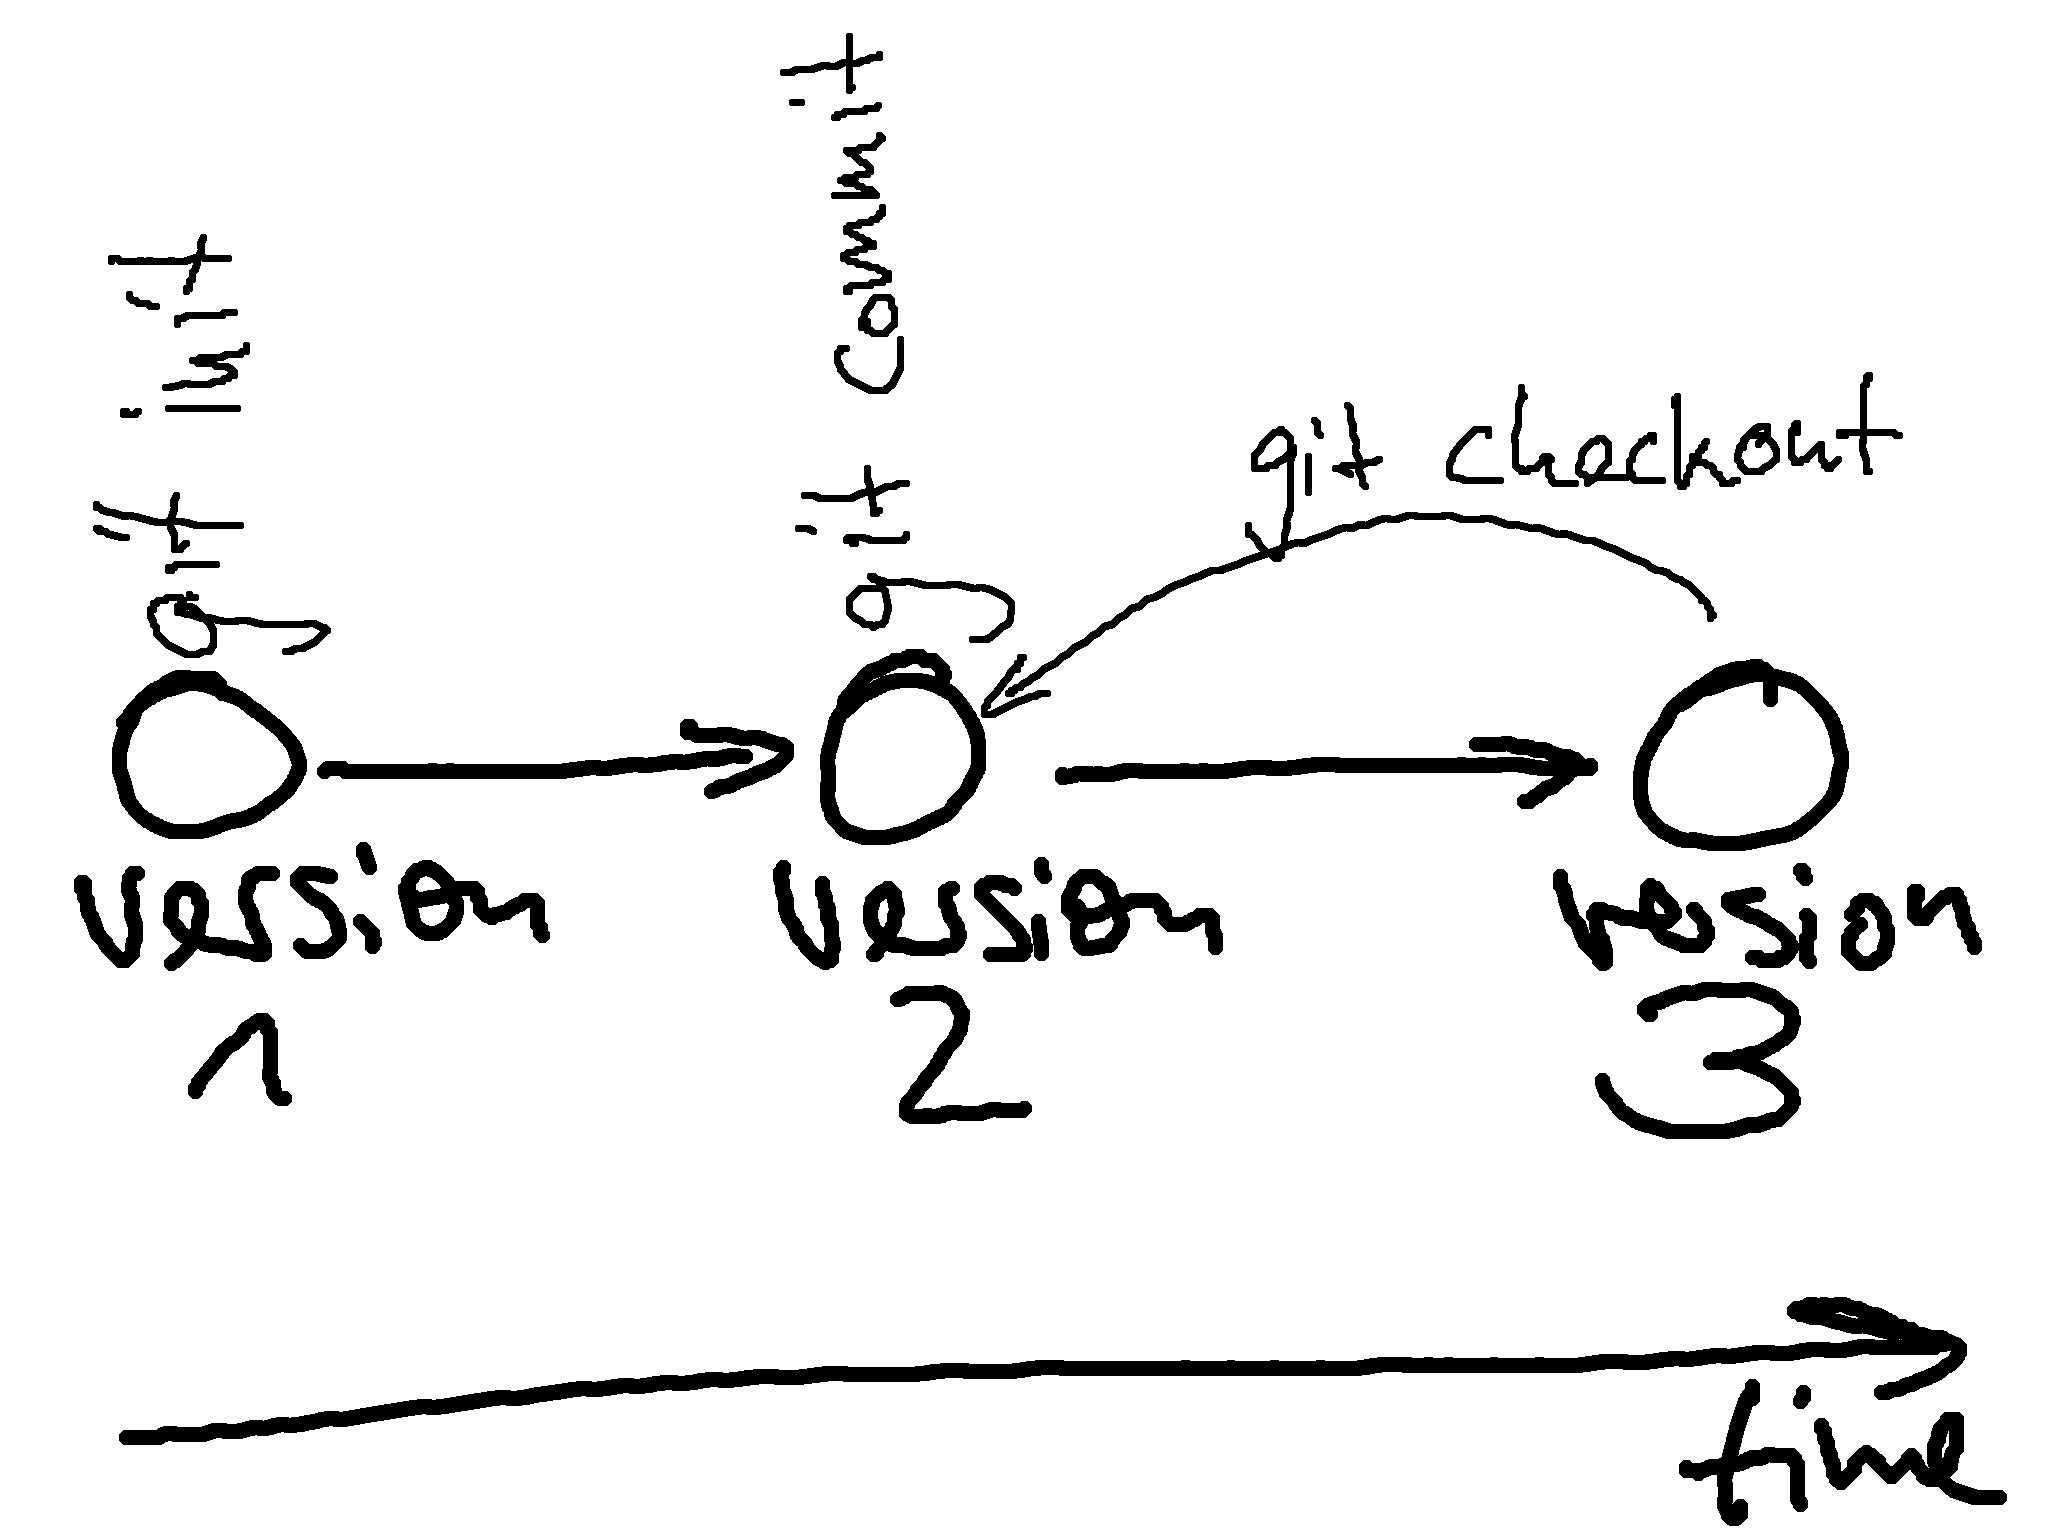 git init
git commit
git checkout
version
1
version
2
version
3
time